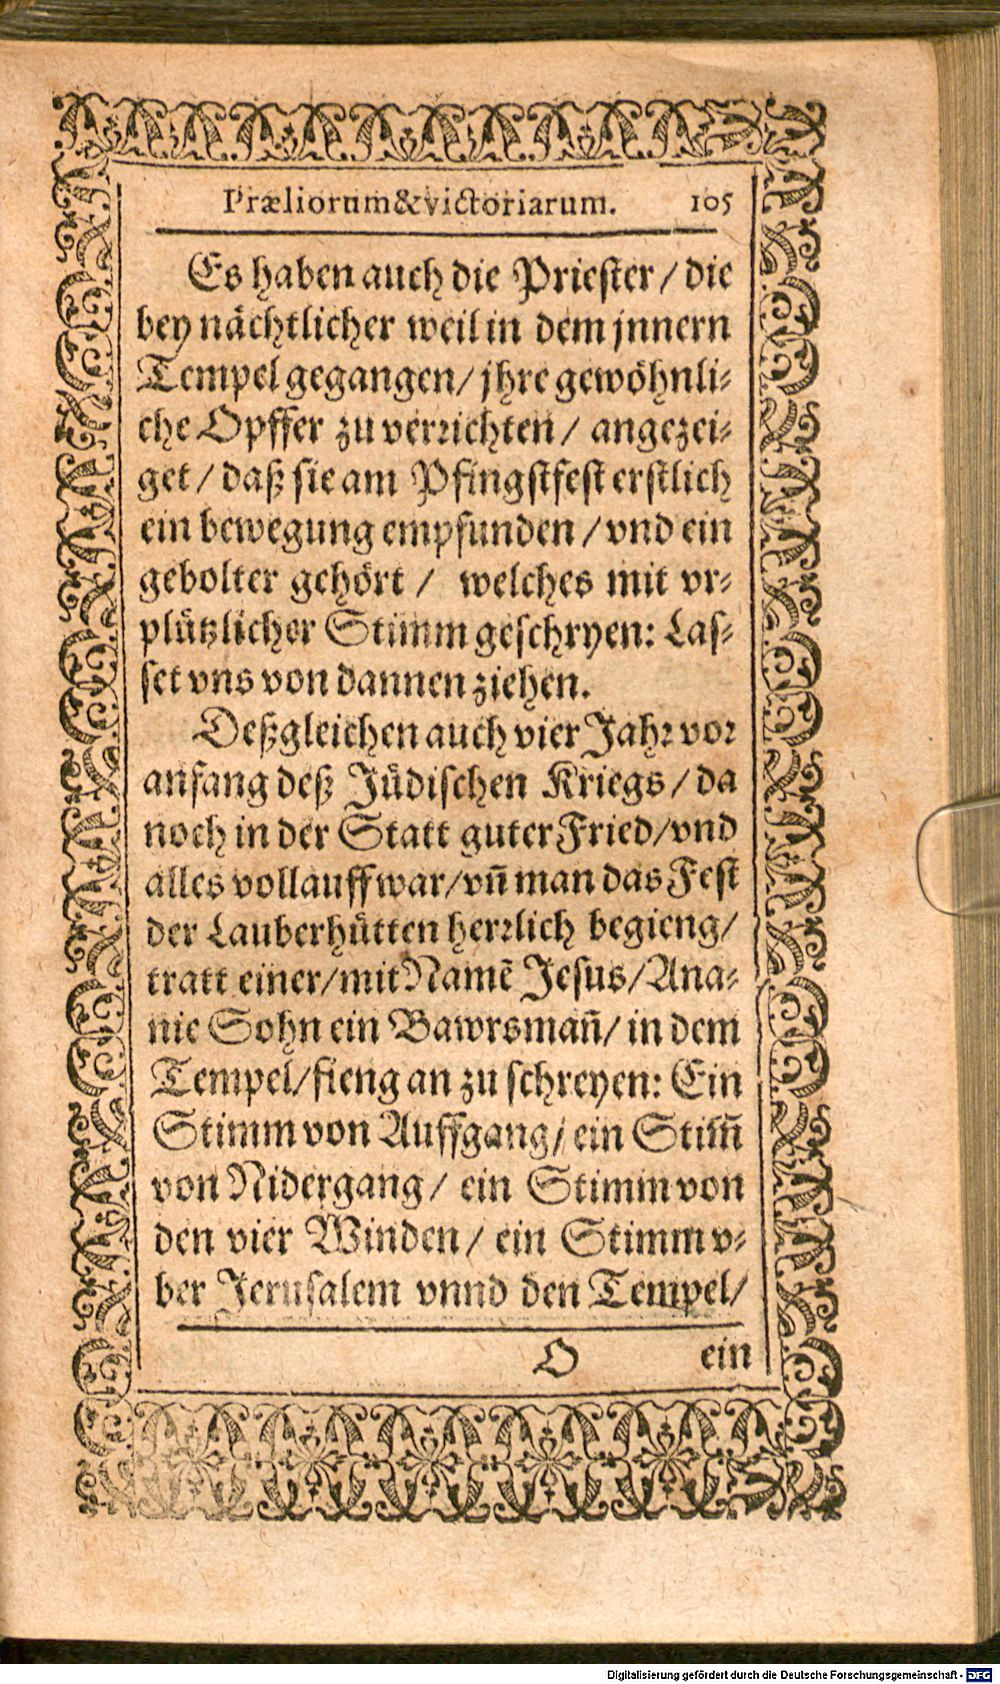 Præliorum & victoriarum. 105
Es haben auch die Priester / die
bey nächtlicher weil in dem jnnern
Tempel gegangen / jhre gewöhnli-
che Opffer zu verrichten / angezei-
get / daß sie am Pfingstfest erstlich
ein bewegung empfunden / vnd ein
gebolter gehört / welches mit vr-
plützlicher Stimm geschryen: Las-
set vns von dannen ziehen.
Deßgleichen auch vier Jahr vor
anfang deß Jüdischen Kriegs / da
noch in der Statt guter Fried / vnd
alles vollauff war / vñ man das Fest
der Lauberhütten herrlich begieng /
tratt einer / mit Namẽ Jesus / Ana-
nie Sohn ein Bawrsmañ / in dem
Tempel / fieng an zu schreyen: Ein
Stimm von Auffgang / ein Stim̃
von Nidergang / ein Stimm von
den vier Winden / ein Stimm v-
ber Jerusalem vnnd den Tempel /
O ein
Digitalisierung gefördert durch die Deutsche Forschungsgemeinschaft - DFG